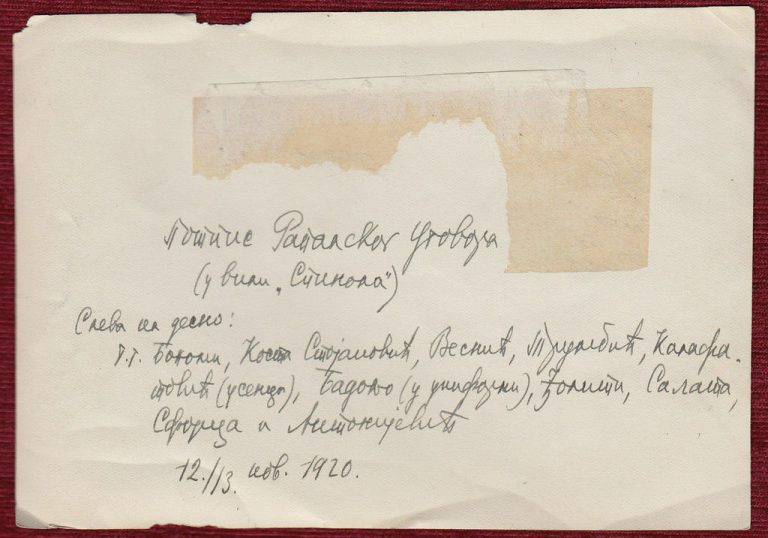 Потпис Рапалског Уговора
(у вили „Спинола“)
Слева на десно:
Г.г. Бономи, Коста Стојановић, Веснић, Трумбић, Калафа-
товић (у сенци), Бадољо (у униформи), Ђолити, Салата,
Сфорца и Антонијевић
12./13. нов. 1920.